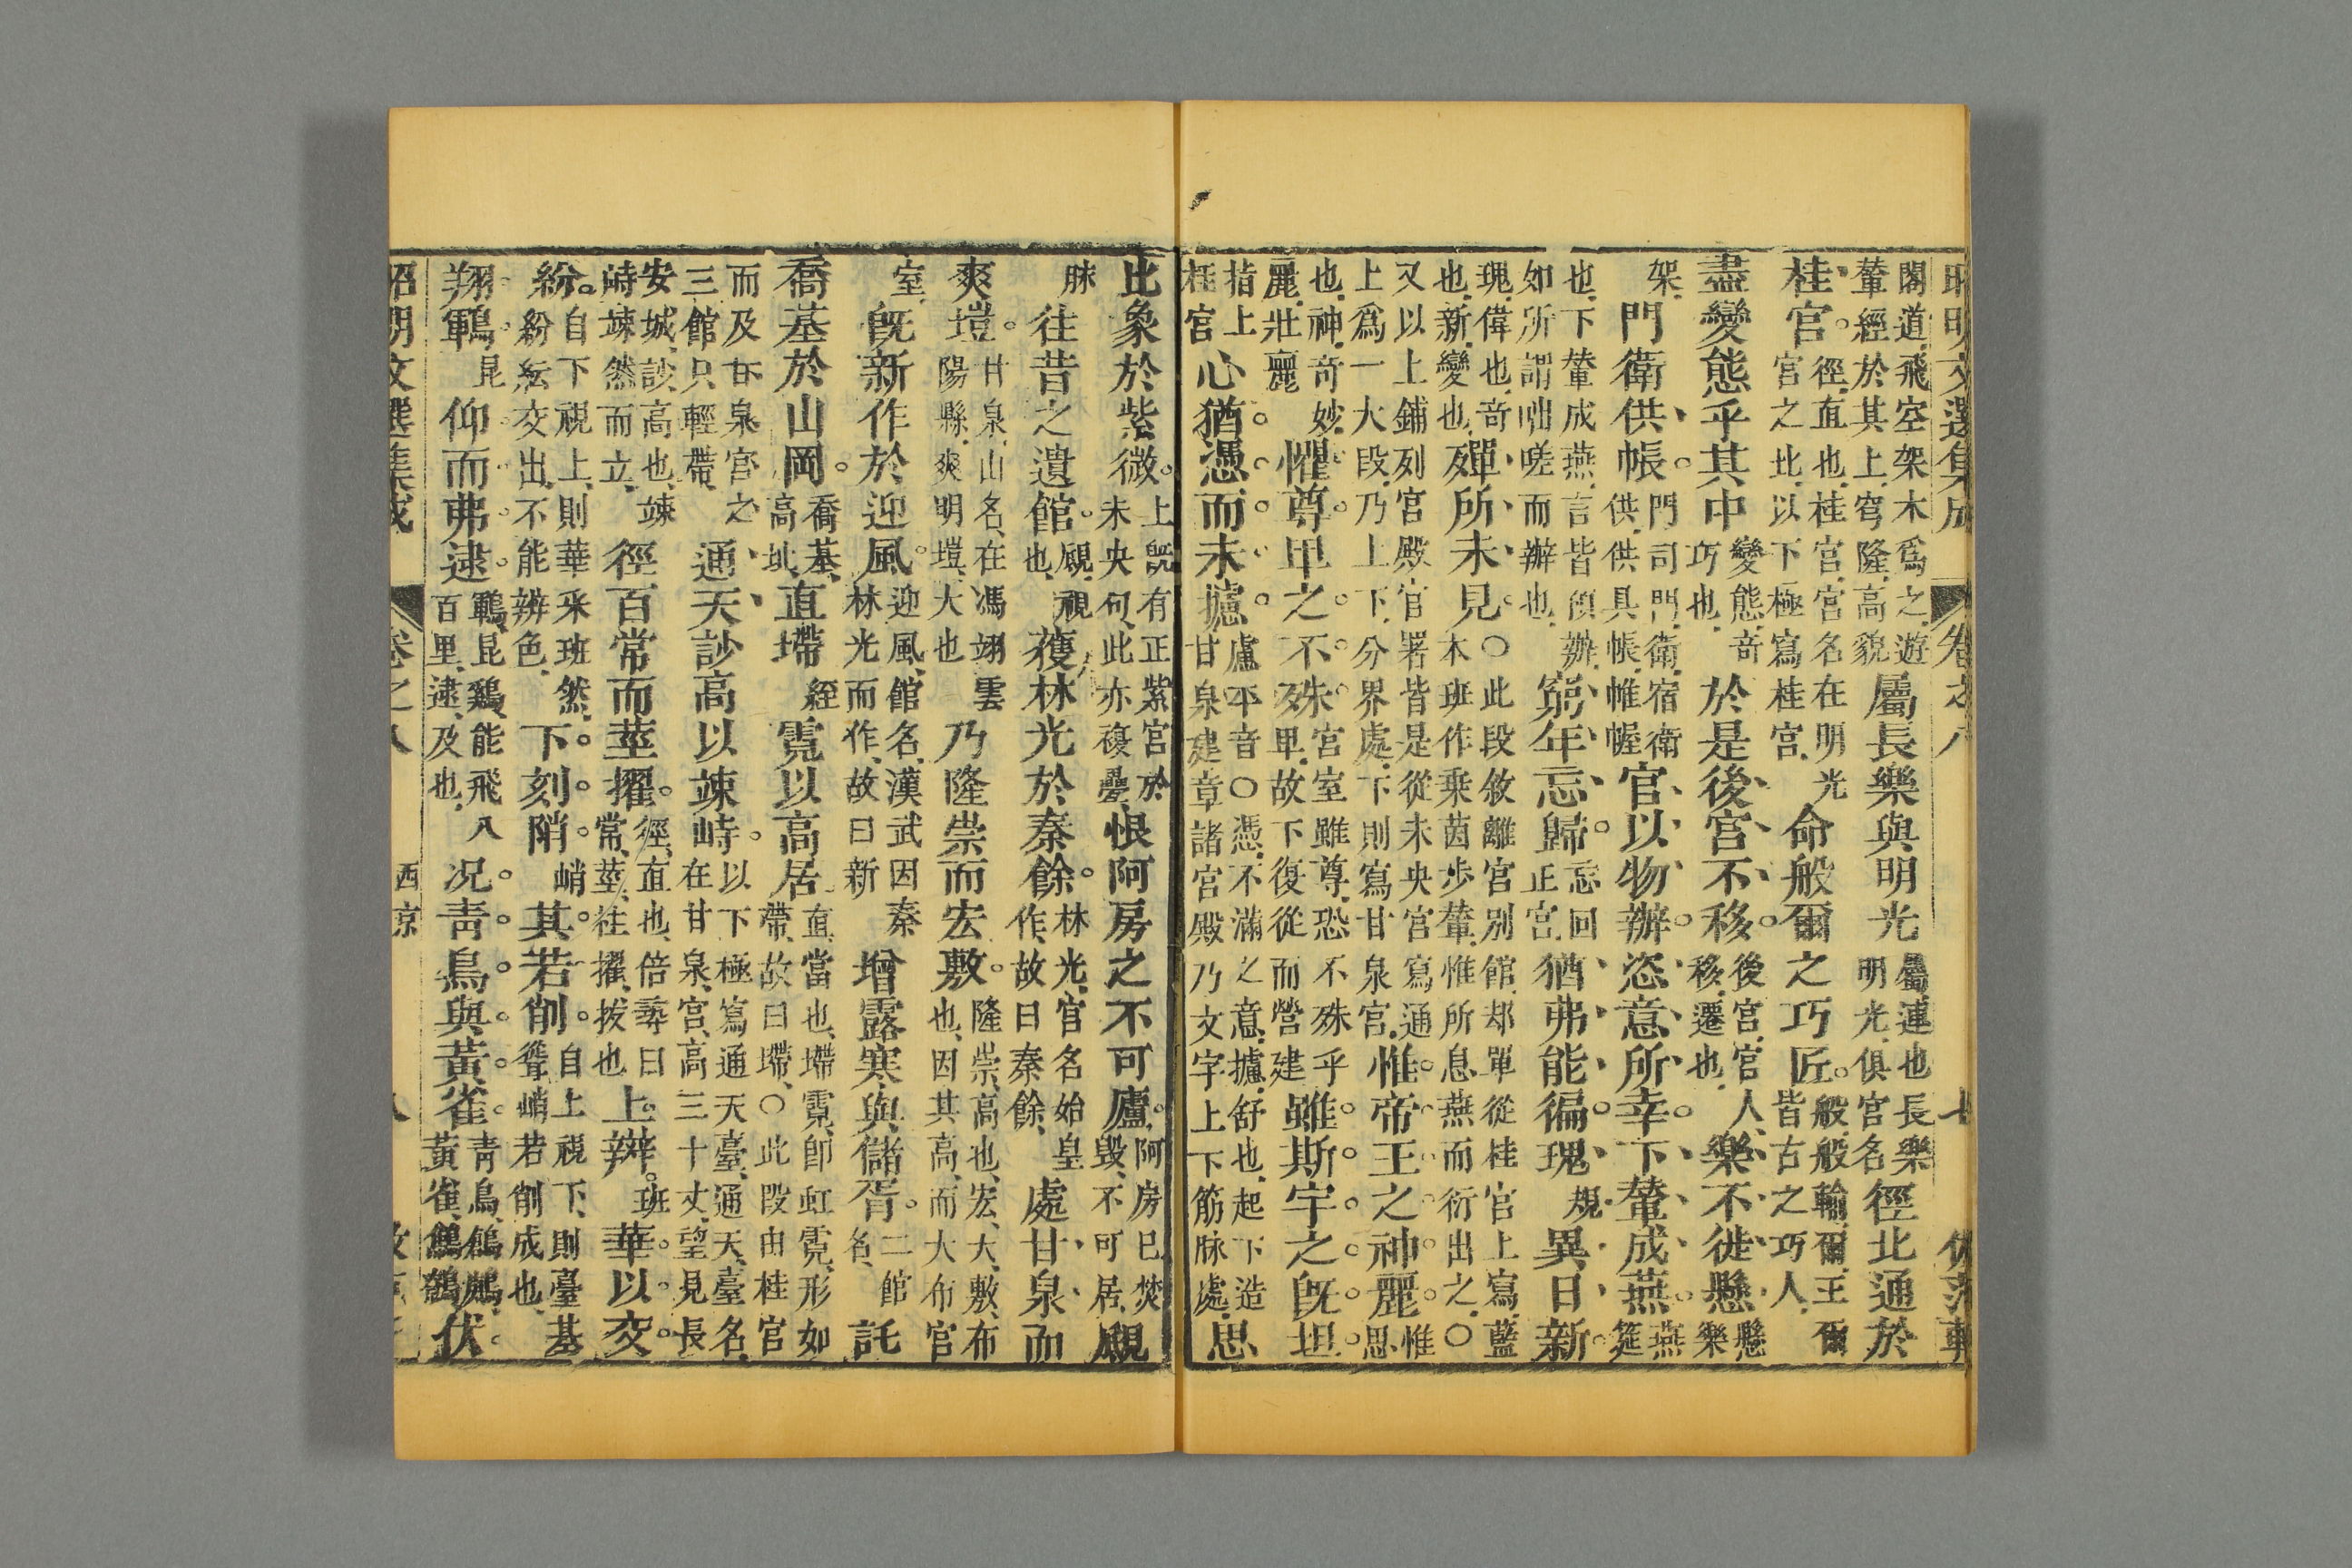 閣道飛空架木爲之遊輦經於其上穹隆高貌屬長樂與明光屬連也長樂明光俱宮名徑北通於
桂宮徑直也桂宮宮名在明光宮之北以下極寫桂宮命般爾之巧匠般般輸爾王爾皆古之巧人
盡變態乎其中變態奇巧也於是後宮不移後宮宮人移遷也樂不徙懸懸樂
架門衛供帳門司門衛宿衛供供具帳帷幄官以物辨恣意所幸下輦成燕燕筵
也下輦成燕言皆預辦如所謂咄嗟而辦也窮年忘歸忘回正宮猶弗能徧瑰規異日新
瑰偉也奇也新變也殫所未見○此段敘離宮別館却單從桂宮上寫藍木班作乗茵步輦惟所息燕而衍出之○
又以上鋪列宮殿官署皆是從未央宮寫通上爲一大段乃上下分界處下則寫甘泉宮惟帝王之神麗惟思
也神奇妙麗壯麗懼尊卑之不殊宮室雖尊恐不殊乎卑故下復從而營建雖斯宇之旣坦
指上桂宮心猶憑而未攄盧平音○憑不滿之意攄舒也起下造甘泉建章諸宮殿乃文字上下筋脉處思
比象於紫微上旣有正紫宮於未央句此亦複疊恨阿房之不可廬阿房已焚毀不可居覛
脉往昔之遺館覛視也獲林光於秦餘林光宮名始皇作故曰秦餘處甘泉而
爽塏甘泉山名在馮翊雲陽縣爽明塏大也乃隆崇而宏敷隆崇高也宏大敷布也因其高而大布宮
室旣新作於迎風迎風館名漢武因秦林光而作故曰新增露寒與儲胥二館名託
喬基於山岡喬基高址直墆絰霓以高居直當也墆霓卽虹霓形如帶故曰墆○此段由桂宮
而及甘泉宮之三館只輕帶通天訬高以竦峙以下極寫通天臺通天臺名在甘泉宮高三十丈望見長
安城訬高也竦峙竦然而立徑百常而莖擢徑直也倍尋曰常莖往擢拔也上辬班華以交
紛自下視上則華采班然紛紛紜交出不能辨色下刻陗峭其若削自上視下則臺基聳峭若削成也
翔鶤昆仰而弗逮鶤昆鷄能飛八百里逮及也况青鳥與黃雀青鳥鶬鴰黃雀鷦鷯伏
昭明文選集成 卷之八 西京 八